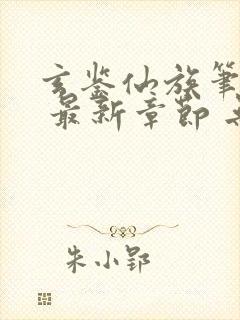 玄鉴仙族笔
最新章节
朱小郢